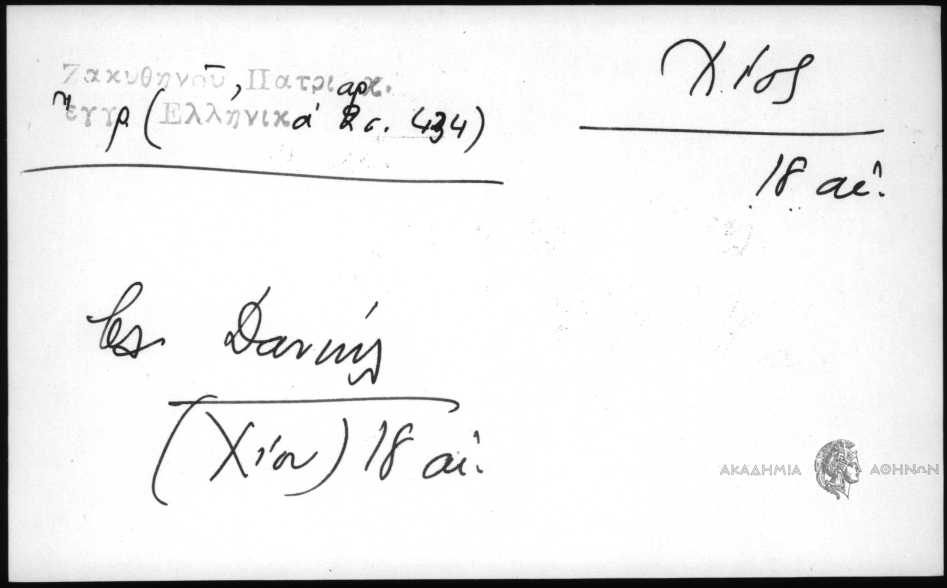 Ζακυθηνοῦ, Πατριαρχ.
ἔγγρ(Ἑλληνικά 2 σ. 434)
Χίος
18 αἰ.
Δανιήλ
(Χίου) 18 αἰ.
ΑΚΑΔΗΜΙΑ ΑΘΗΝΩΝ